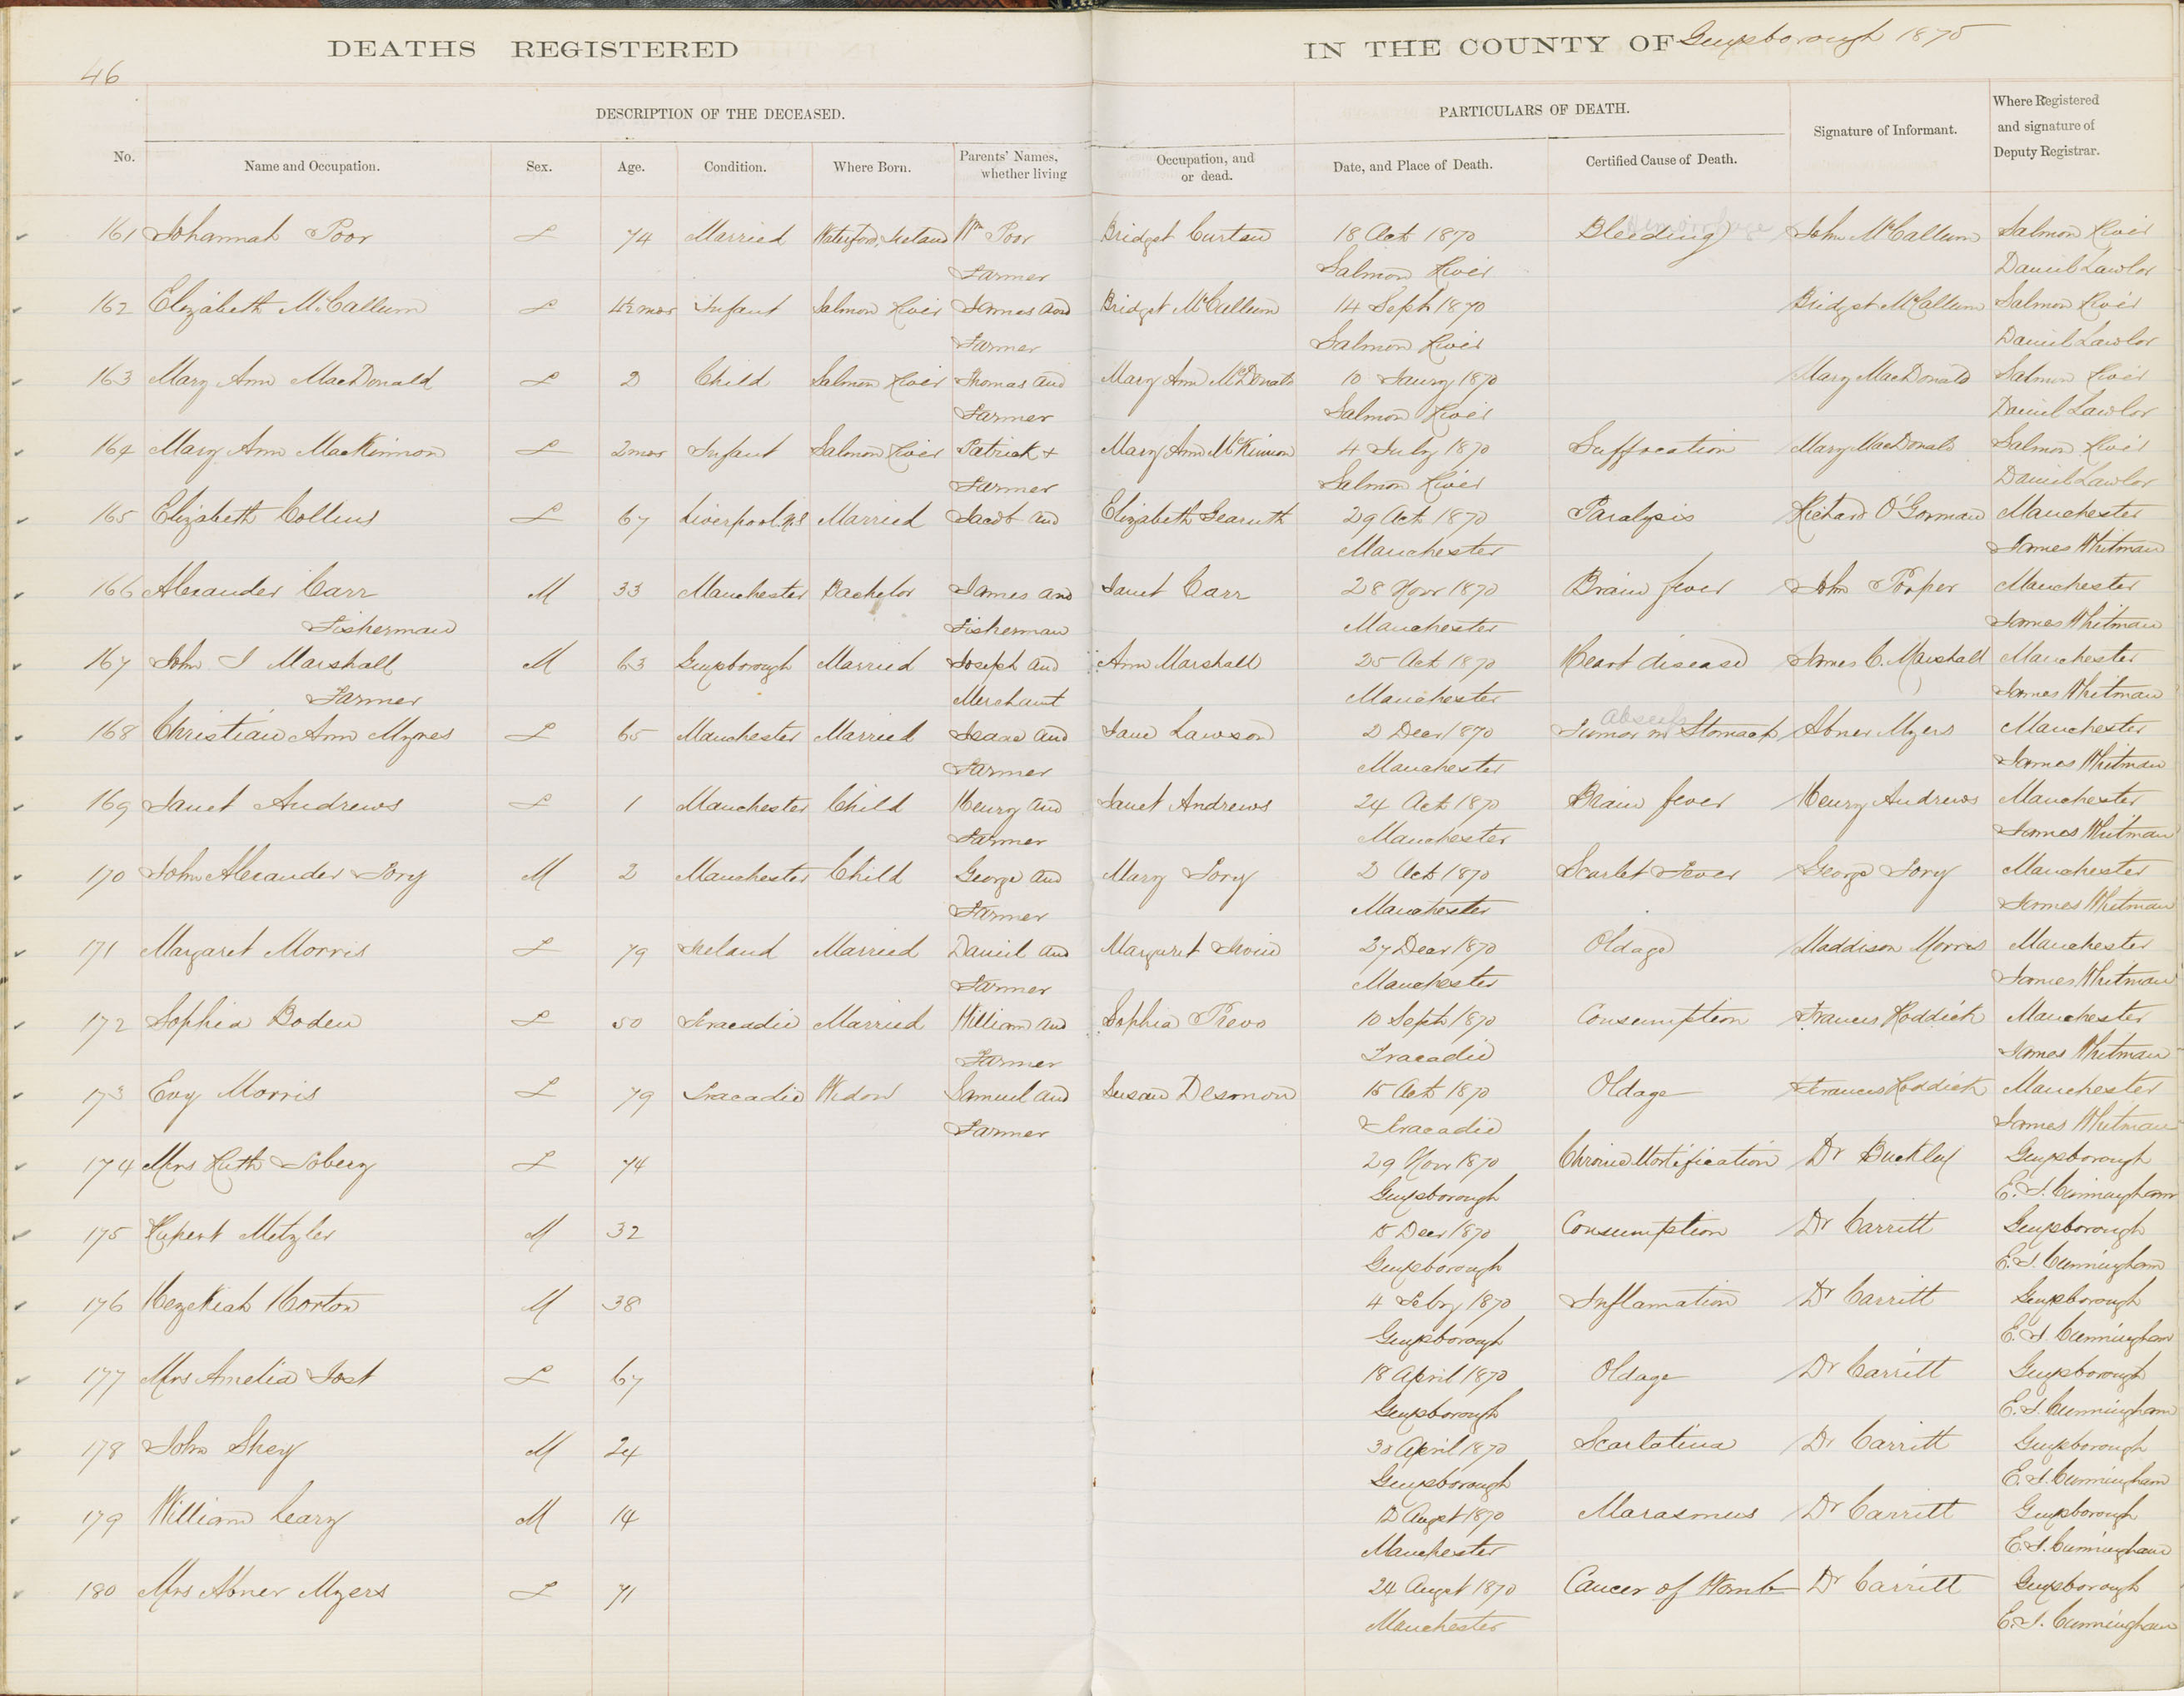 DEATHS REGISTERED IN THE COUNTY OF Guysborough 1870
46
DESCRIPTION OF THE DECEASED. PARTICULARS OF DEATH. Signature of Informant. Where Registered and signature of Deputy Registrar.
No. Name and Occupation. Sex. Age. Condition. Where Born. Parents' Names, whether living Occupation, and or dead. Date, and Place of Death. Certified Cause of Death.
161 Johannah Poor F 74 Married Waterford, Ireland Wm Poor Bridget Curtan 18 Oct 1870 Bleeding John McCallum Salmon River
Farmer Salmon River Daniel Lawlor
162 Elizabeth McCallum F 4½ mos Infant Salmon River James and Bridget McCallum 14 Sept 1870 Bridget McCallum Salmon River
Farmer Salmon River Daniel Lawlor
163 Mary Ann MacDonald F 2 Child Salmon River Thomas and Mary Ann McDonald 10 Jaury 1870 Mary MacDonald Salmon River
Farmer Salmon River Daniel Lawlor
164 Mary Ann MacKinnon F 2 mos Infant Salmon River Patrick + Mary Ann McKinnon 4 July 1870 Suffocation Mary MacDonald Salmon River
Farmer Salmon River Daniel Lawlor
165 Elizabeth Collins F 67 Liverpool NS Married Jacob and Elizabeth 29 Oct 1870 Paralysis Richard O'Gorman Manchester
Manchester James Whitman
166 Alexander Carr M 33 Manchester Bachelor James and Janet Carr 28 Novr 1870 Brain fever John Manchester
Fisherman Fisherman Manchester James Whitman
167 John J Marshall M 63 Guysborough Married Joseph and Ann Marshall 25 Oct 1870 Heart disease James C. Marshall Manchester
Farmer Merchant Manchester James Whitman
Abscess
168 Christian Ann Myres F 65 Manchester Married Isaac and Jane Lawson 2 Decr 1870 Tumor in Stomach Abner Myers Manchester
Farmer Manchester James Whitman
169 Janet Andrews F 1 Manchester Child Henry and Janet Andrews 24 Oct 1870 Brain fever Henry Andrews Manchester
Farmer Manchester James Whitman
170 John Alexander Tory M 2 Manchester Child George and Mary Tory 2 Oct 1870 Scarlet Fever George Tory Manchester
Farmer Manchester James Whitman
171 Margaret Morris F 79 Ireland Married Daniel and Margaret Irvin 27 Decr 1870 Oldage Maddison Morris Manchester
Farmer Manchester James Whitman
172 Sophia Boden F 50 Tracadie Married William and Sophia Prevo 10 Sept 1870 Consumption Francis Roddick Manchester
Farmer Tracadie James Whitman
173 Evy Morris F 79 Tracadie Widow Samuel and Susan Desmon 15 Oct 1870 Oldage Francis Roddick Manchester
Farmer Tracadie James Whitman
174 Mrs Ruth F 74 29 Novr 1870 Chronic Mortification Dr Buckley Guysborough
Guysborough E. J. Cunningham
175 Rupert Metzler M 32 15 Decr 1870 Consumption Dr Carritt Guysborough
Guysborough E. J. Cunningham
176 Hezekiah Horton M 38 4 Feby 1870 Inflamation Dr Carritt Guysborough
Guysborough E. J. Cunningham
177 Mrs Amelia Jost F 67 18 April 1870 Oldage Dr Carritt Guysborough
Guysborough E. J. Cunningham
178 John Shey M 24 30 April 1870 Scarlatina Dr Carritt Guysborough
Guysborough E. J. Cunningham
179 William Leary M 14 12 Augst 1870 Marasmus Dr Carritt Guysborough
Manchester E. J. Cunningham
180 Mrs Abner Myers F 71 24 Augst 1870 Cancer of Womb Dr Carritt Guysborough
Manchester E. J. Cunningham